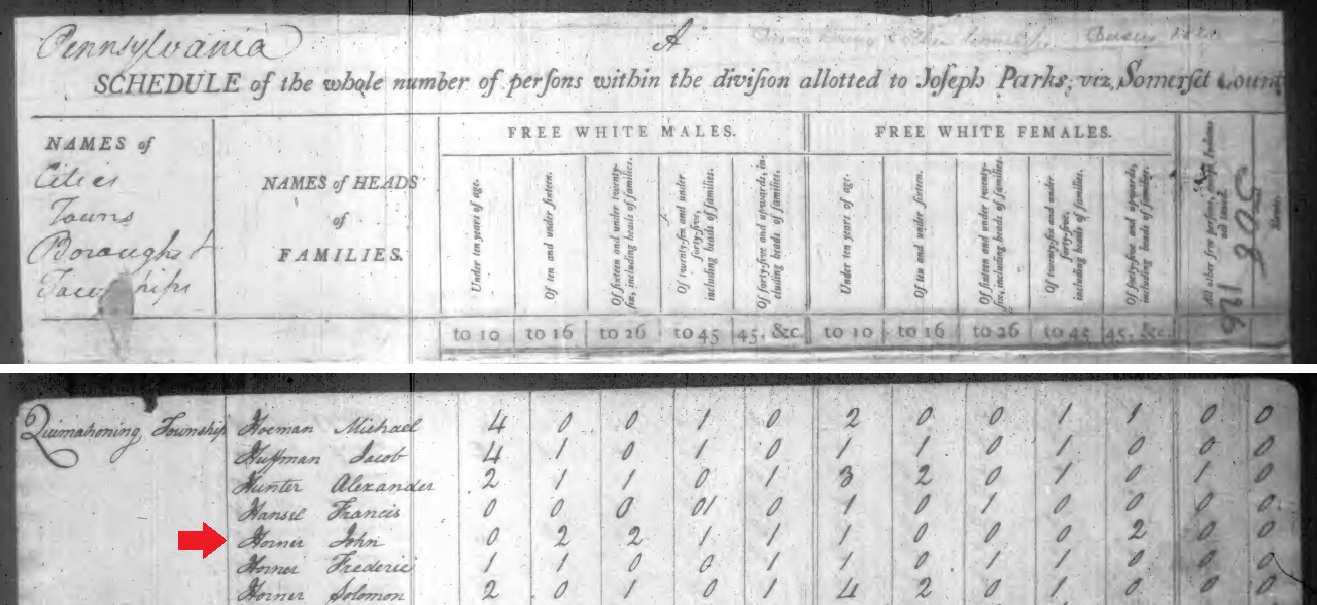 Pennsylvania
A
SCHEDULE of the whole number of perſons within the diviſion allotted to Joſeph Parks, viz, Somerſet Count
NAMES of
Cities
Towns
Boroughs &
Townſhips
NAMES of HEADS
of
FAMILIES.
FREE WHITE MALES.
Under ten years of age.
Of ten and under ſixteen.
Of ſixteen and under twenty-
ſix, including heads of families.
Of twenty-ſix and under
forty-five,
including heads of families.
Of forty-five and upwards, in-
cluding heads of families.
FREE WHITE FEMALES.
Under ten years of age.
Of ten and under ſixteen.
Of ſixteen and under twenty-
ſix, including heads of families.
Of twenty-ſix and under
forty-five,
including heads of families.
Of forty-five and upwards,
including heads of families.
All other free perſons, except Indians
not taxed.
to 10 to 16 to 26 to 45 45, &c. to 10 to 16 to 26 to 45 45, &c.
Quimahoning Township Hoeman Michael 4 0 0 1 0 2 0 0 1 1 0 0
Huffman Jacob 4 1 0 1 0 1 1 0 1 0 0 0
Hunter Alexander 2 1 1 0 1 3 2 0 1 0 1 0
Hansel Francis 0 0 0 01 1 0 1 0 0 0 0
Horner John 0 2 2 1 1 1 0 0 0 2 0 0
Horner Frederic 1 1 0 0 1 1 0 1 1 0 0 0
Horner Solomon 2 0 1 0 1 4 2 0 1 0 0 0